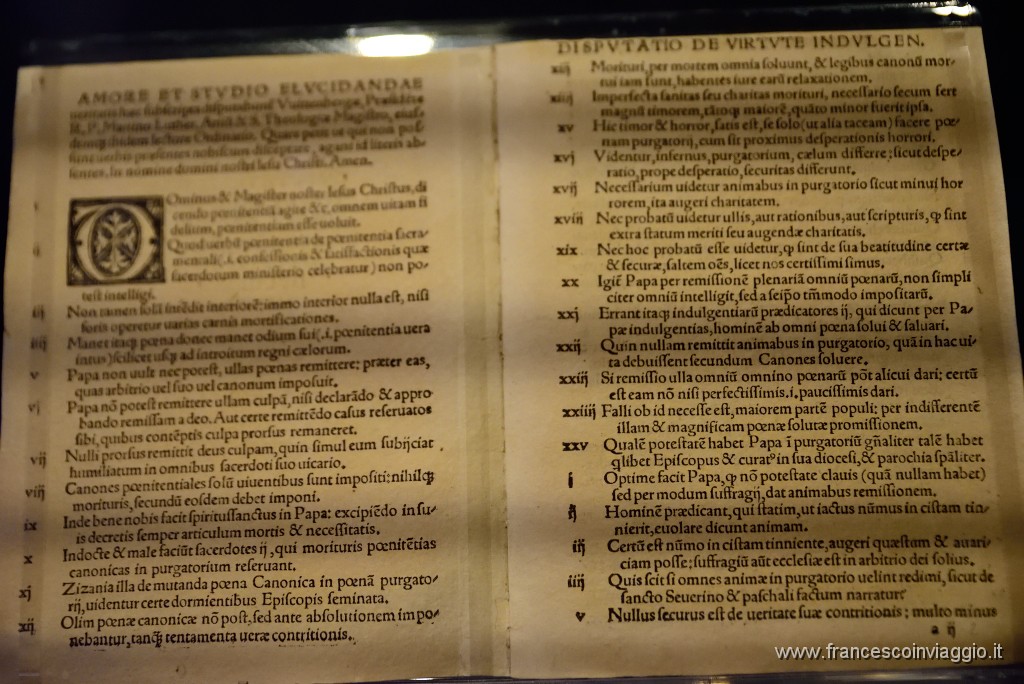 AMORE ET STVDIO ELVCIDANDAE
ueritatis hæc subscripta disputabuntur Vuittenbergæ, Præsidente
R. P. Martino Luther, Artiū & S. Theologiæ Magistro, eius-
demq; ibidem lectore Ordinario. Quare petit ut qui non pos-
sunt uerbis præsentes nobiscum disceptare, agant id literis ab-
sentes. In nomine domini nostri Iesu Christi. Amen.
DOminus & Magister noster Iesus Christus, di
cendo pœnitentiā agite &c, omnem uitam fi
delium, pœnitentiam esse uoluit.
ij Quod uerbū pœnitentia de pœnitentia sacra-
mentali (.i. confessionis & satisfactionis quæ
sacerdotum ministerio celebratur) non po-
test intelligi.
iij Non tamen solā intēdit interiorē: immo interior nulla est, nisi
foris operetur uarias carnis mortificationes.
iiij Manet itaq; pœna donec manet odium sui (.i. pœnitentia uera
intus) scilicet usq; ad introitum regni cælorum.
v Papa non uult nec potest, ullas pœnas remittere: præter eas,
quas arbitrio uel suo uel canonum imposuit.
vj Papa nō potest remittere ullam culpā, nisi declarādo & appro-
bando remissam a deo. Aut certe remittēdo casus reseruatos
sibi, quibus contēptis culpa prorsus remaneret.
vij Nulli prorsus remittit deus culpam, quin simul eum subijciat
humiliatum in omnibus sacerdoti suo uicario.
viij Canones pœnitentiales solū uiuentibus sunt impositi: nihilq;
morituris, secundū eosdem debet imponi.
ix Inde bene nobis facit spiritussanctus in Papa: excipiēdo in su-
is decretis semper articulum mortis & necessitatis.
x Indocte & male faciūt sacerdotes ij, qui morituris pœnitētias
canonicas in purgatorium reseruant.
xj Zizania illa de mutanda pœna Canonica in pœnā purgato-
rij, uidentur certe dormientibus Episcopis seminata.
xij Olim pœnæ canonicæ nō post, sed ante absolutionem impo-
nebantur, tanq̄ tentamenta ueræ contritionis.
DISPVTATIO DE VIRTVTE INDVLGEN.
xiij Morituri, per mortem omnia soluunt, & legibus canonū mor-
tui iam sunt, habentes iure earū relaxationem.
xiiij Imperfecta sanitas seu charitas morituri, necessario secum fert
magnū timorem, tātoq; maiorē, quāto minor fuerit ipsa.
xv Hic timor & horror, satis est, se solo (ut alia taceam) facere pœ-
nam purgatorij, cum sit proximus desperationis horrori.
xvj Videntur, infernus, purgatorium, cælum differre: sicut despe-
ratio, prope desperatio, securitas differunt.
xvij Necessarium uidetur animabus in purgatorio sicut minui hor
rorem, ita augeri charitatem.
xviij Nec probatū uidetur ullis, aut rationibus, aut scripturis, q̨ sint
extra statum meriti seu augendæ charitatis.
xix Nec hoc probatū esse uidetur, q̨ sint de sua beatitudine certæ
& securæ, saltem oēs, licet nos certissimi simus.
xx Igiť Papa per remissionē plenariā omniū pœnarū, non simpli
citer omniū intelligit, sed a seipo tm̄modo impositarū.
xxj Errant itaq; indulgentiarū prædicatores ij, qui dicunt per Pa-
pæ indulgentias, hominē ab omni pœna solui & saluari.
xxij Quin nullam remittit animabus in purgatorio, quā in hac ui-
ta debuissent secundum Canones soluere.
xxiij Si remissio ulla omniū omnino pœnarū pōt alicui dari: certū
est eam nō nisi perfectissimis .i. paucissimis dari.
xxiiij Falli ob id necesse est, maiorem partē populi: per indifferentē
illam & magnificam pœnæ solutæ promissionem.
xxv Qualē potestatē habet Papa ī purgatoriū gn̄aliter talē habet
q̄libet Episcopus & curatꝰ in sua diocesi, & parochia sp̄aliter.
i Optime facit Papa, q̨ nō potestate clauis (quā nullam habet)
sed per modum suffragij, dat animabus remissionem.
ij Hominē prædicant, qui statim, ut iactus nūmus in cistam tin-
nierit, euolare dicunt animam.
iij Certū est nūmo in cistam tinniente, augeri quæstum & auari-
ciam posse: suffragiū aūt ecclesiæ est in arbitrio dei solius.
iiij Quis scit si omnes animæ in purgatorio uelint redimi, sicut de
sancto Seuerino & paschali factum narratur
v Nullus securus est de ueritate suæ contritionis: multo minus
a ij
www.francescoinviaggio.it